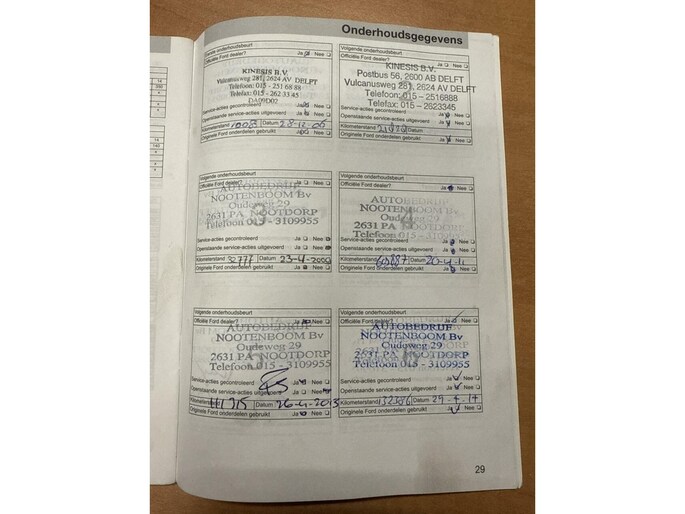 Onderhoudsgegevens
Volgende onderhoudsbeurt
Officiële Ford dealer? Ja Nee
KINESIS B.V.
Vulcanusweg 281, 2624 AV DELFT
Telefoon: 015 - 251 68 88
Telefax: 015 - 262 33 45
DA09D02
Service-acties gecontroleerd Ja Nee
Openstaande service-acties uitgevoerd Ja Nee
Kilometerstand Datum 28-12-06
Originele Ford onderdelen gebruikt Ja Nee
Volgende onderhoudsbeurt
Officiële Ford dealer? Ja Nee
KINESIS B.V.
Postbus 56, 2600 AB DELFT
Vulcanusweg 281, 2624 AV DELFT
Telefoon: 015 – 2516888
Telefax: 015 – 2623345
Service-acties gecontroleerd Ja Nee
Openstaande service-acties uitgevoerd Ja Nee
Kilometerstand Datum
Originele Ford onderdelen gebruikt Ja Nee
Volgende onderhoudsbeurt
Officiële Ford dealer? Ja Nee
AUTOBEDRIJF
NOOTENBOOM Bv
Oudeweg 29
2631 PA NOOTDORP
Telefoon 015 - 3109955
3
Service-acties gecontroleerd Ja Nee
Openstaande service-acties uitgevoerd Ja Nee
Kilometerstand 32777 Datum 23-4-2009
Originele Ford onderdelen gebruikt Ja Nee
Volgende onderhoudsbeurt
Officiële Ford dealer? Ja Nee
AUTOBEDRIJF
NOOTENBOOM Bv
Oudeweg 29
2631 PA NOOTDORP
Telefoon 015 - 3109955
4
Service-acties gecontroleerd Ja Nee
Openstaande service-acties uitgevoerd Ja Nee
Kilometerstand 60887 Datum 20-4-11
Originele Ford onderdelen gebruikt Ja Nee
Volgende onderhoudsbeurt
Officiële Ford dealer? Ja Nee
AUTOBEDRIJF
NOOTENBOOM Bv
Oudeweg 29
2631 PA NOOTDORP
Telefoon 015 - 3109955
Service-acties gecontroleerd Ja Nee
Openstaande service-acties uitgevoerd Ja Nee
Kilometerstand 111215 Datum 26-4-2013
Originele Ford onderdelen gebruikt Ja Nee
Volgende onderhoudsbeurt
Officiële Ford dealer? Ja Nee
AUTOBEDRIJF
NOOTENBOOM Bv
Oudeweg 29
2631 PA NOOTDORP
Telefoon 015 - 3109955
Service-acties gecontroleerd Ja Nee
Openstaande service-acties uitgevoerd Ja Nee
Kilometerstand 132386 Datum
Originele Ford onderdelen gebruikt Ja Nee
29